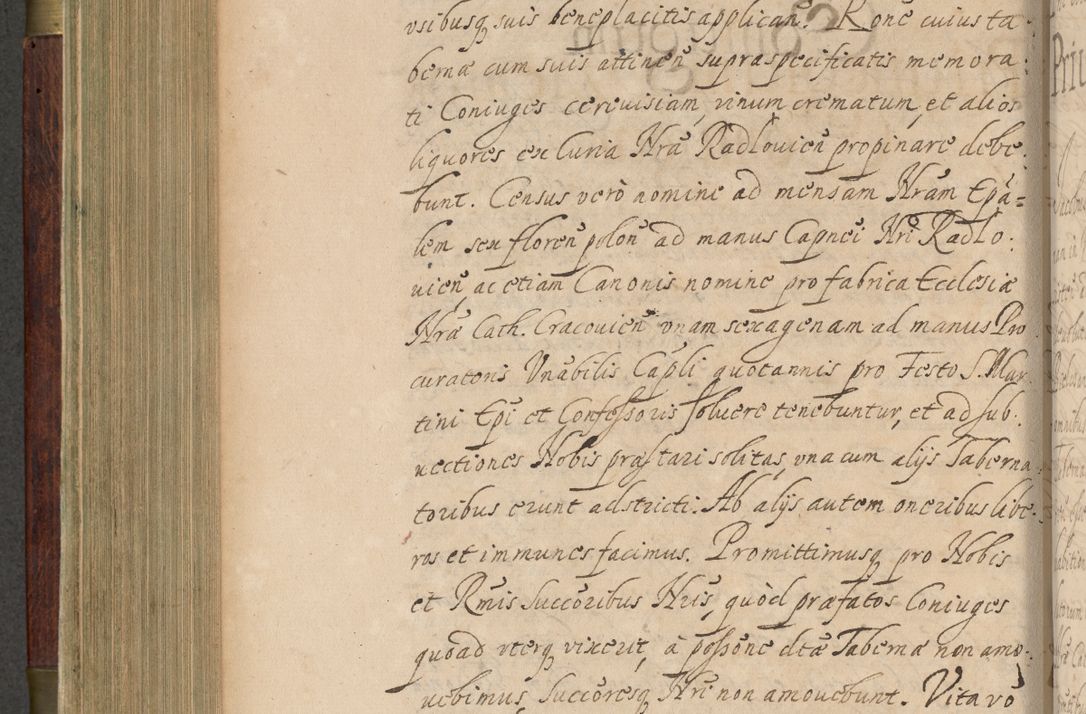 vsibusq suis beneplacitis applican. Rone cuius ta
bernæ cum suis attinen supraspecificatis memora:
ti Coniuges cereuisiam, vinum crematum, et alios
liquores ex Curia Nra Radlouien propinare debe:
bunt. Census verò nomine ad mensam Nram Epa=
lem sex floren polon ad manus Capnei Nri Radlo:
uien, ac etiam Canonis nomine pro fabrica Ecclesiæ
Nræ Cath. Cracouien vnam sexagenam ad manus Pro
curatoris Vnabilis Capli quotannis pro Festo S. Mar
tini Epi et Confessoris soluere tenebuntur, et ad sub:
uectiones Nobis præstari solitas, vna cum alijs Taberna
toribus erunt adstricti. Ab alijs autem oneribus libe:
ros et immunes facimus. Promittimusq pro Nobis
et Rmis Succoribus Nris, quòd præfatos Coniuges
quoad vterq vixerit, à possone dtæ Tabernæ non amo:
uebimus, Succoresq Nri non amouebunt. Vita vo